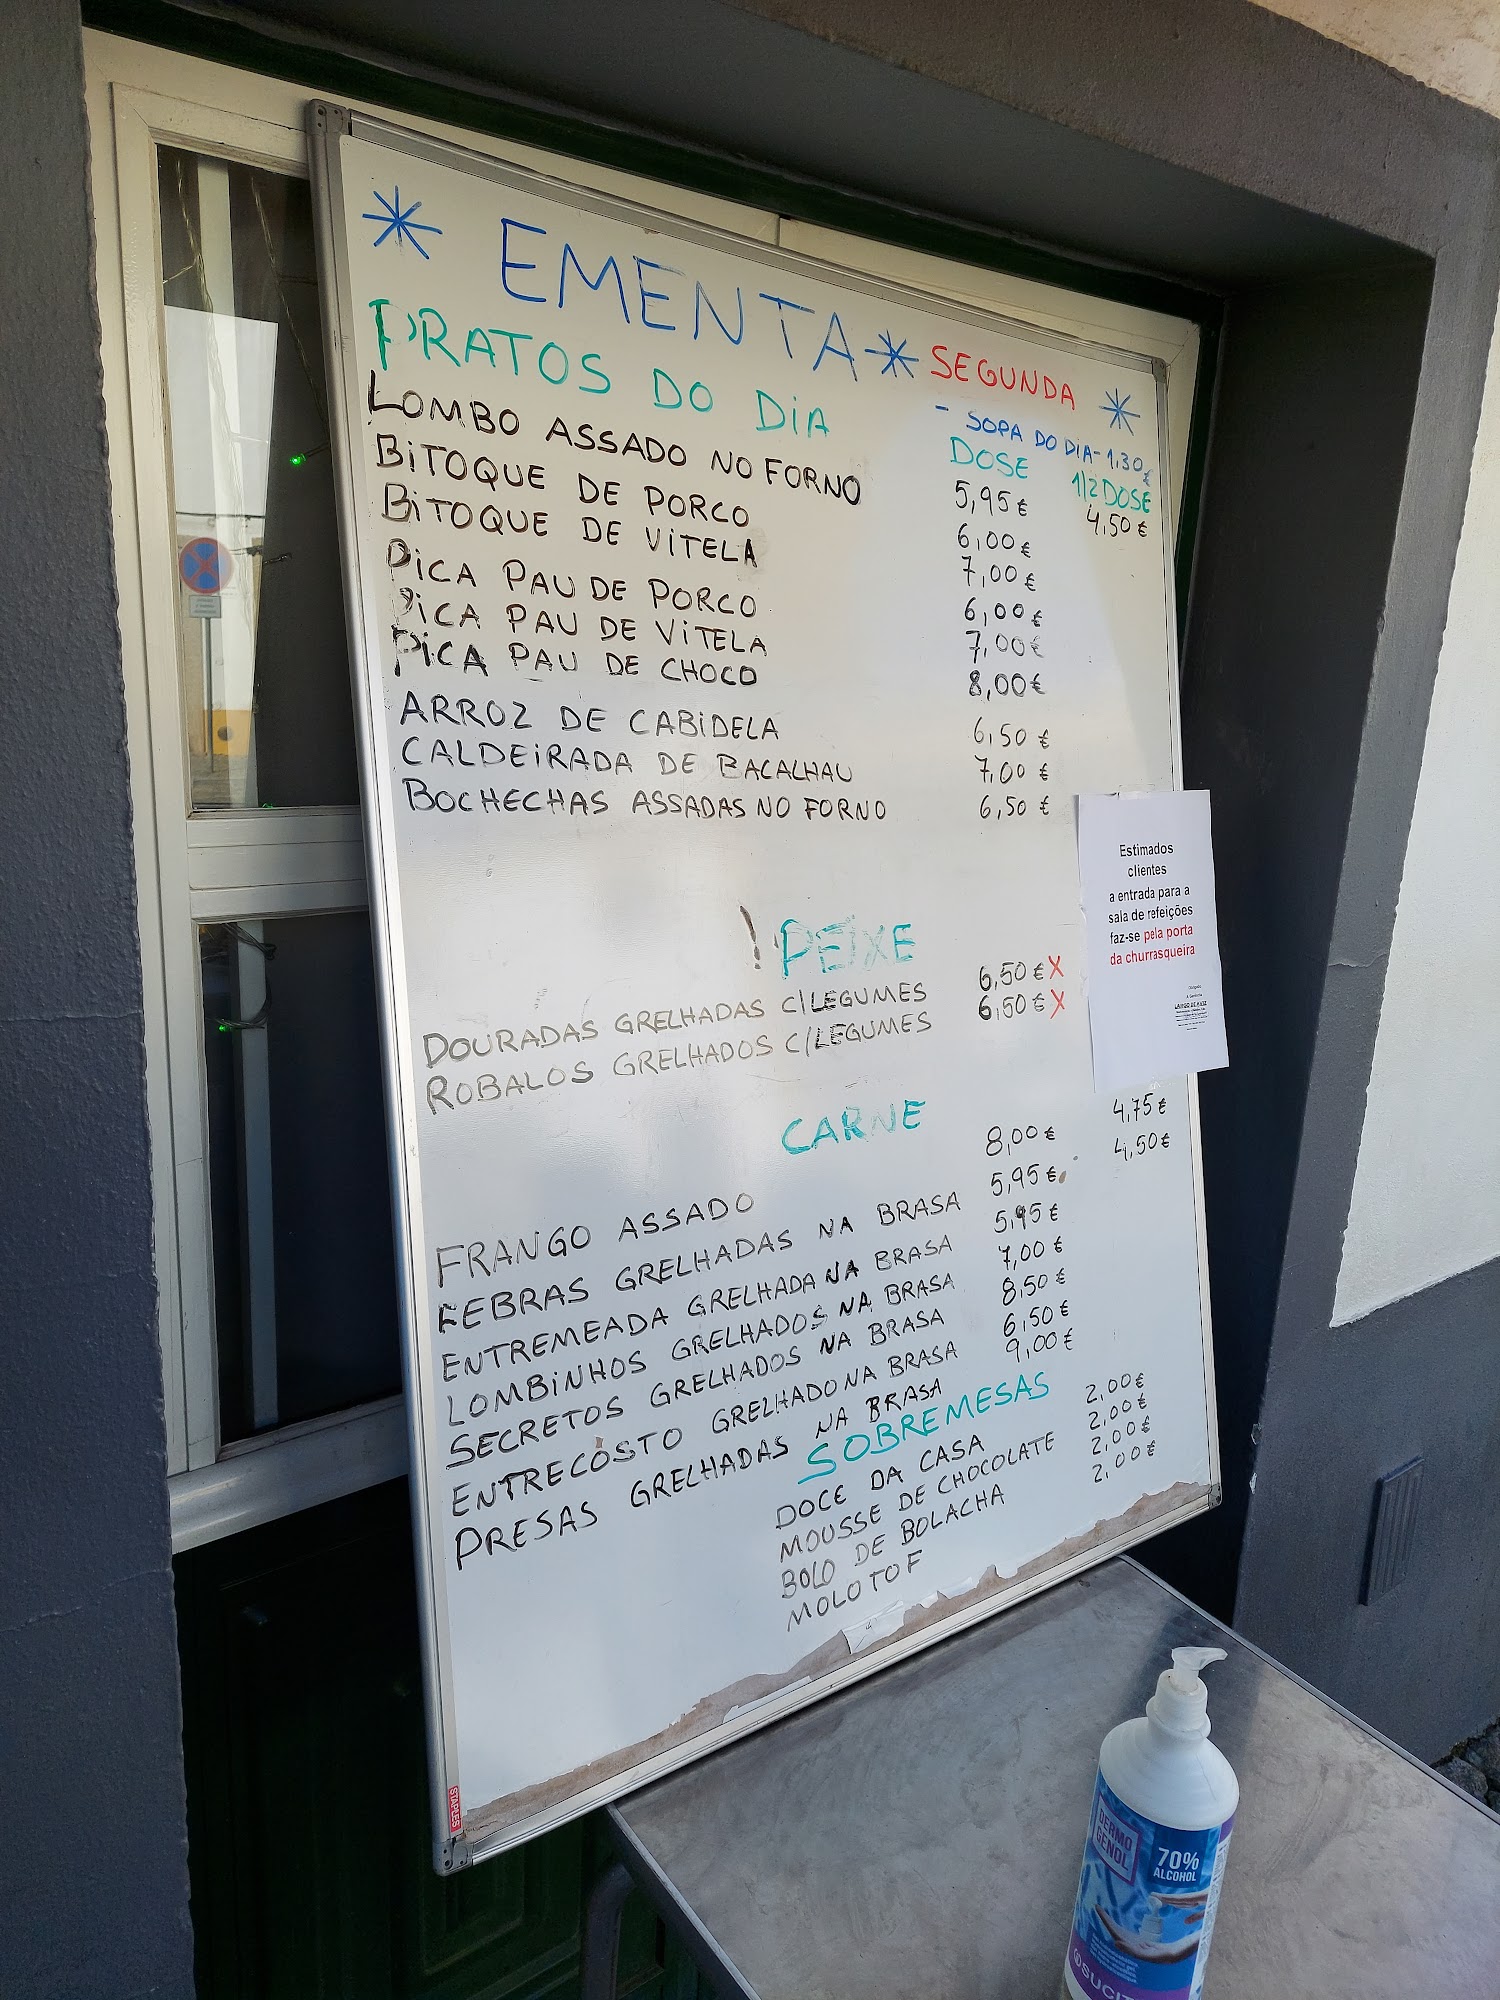 * EMENTA * SEGUNDA *
PRATOS DO DIA - SOPA DO DIA - 1,30€
DOSE 1/2 DOSE
LOMBO ASSADO NO FORNO 5,95 € 4,50 €
BITOQUE DE PORCO 6,00 €
BITOQUE DE VITELA 7,00 €
PICA PAU DE PORCO 6,00 €
PICA PAU DE VITELA 7,00 €
PICA PAU DE CHOCO 8,00 €
ARROZ DE CABIDELA 6,50 €
CALDEIRADA DE BACALHAU 7,00 €
BOCHECHAS ASSADAS NO FORNO 6,50 €
PEIXE
DOURADAS GRELHADAS C/LEGUMES 6,50 € X
ROBALOS GRELHADOS C/LEGUMES 6,50 € X
CARNE
FRANGO ASSADO 8,00 € 4,75 €
FEBRAS GRELHADAS NA BRASA 5,95 € 4,50 €
ENTREMEADA GRELHADA NA BRASA 5,95 €
LOMBINHOS GRELHADOS NA BRASA 7,00 €
SECRETOS GRELHADOS NA BRASA 8,50 €
ENTRECOSTO GRELHADO NA BRASA 6,50 €
PRESAS GRELHADAS NA BRASA 9,00 €
SOBREMESAS
DOCE DA CASA 2,00 €
MOUSSE DE CHOCOLATE 2,00 €
BOLO DE BOLACHA 2,00 €
MOLOTOF 2,00 €
Estimados
clientes
a entrada para a
sala de refeições
faz-se pela porta
da churrasqueira
Obrigado
A Gerência
LARGO DE AVIZ
STAPLES
DERMO
GENOL
70%
ALCOHOL